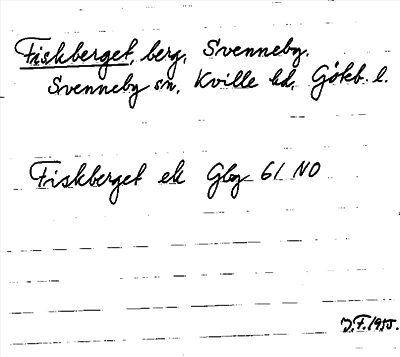 Fiskberget, berg, Svenneby.
Svenneby sn, Kville hd, Göteb. l.
Fiskberget ek Gbg 61 NO
J.F. 1955.